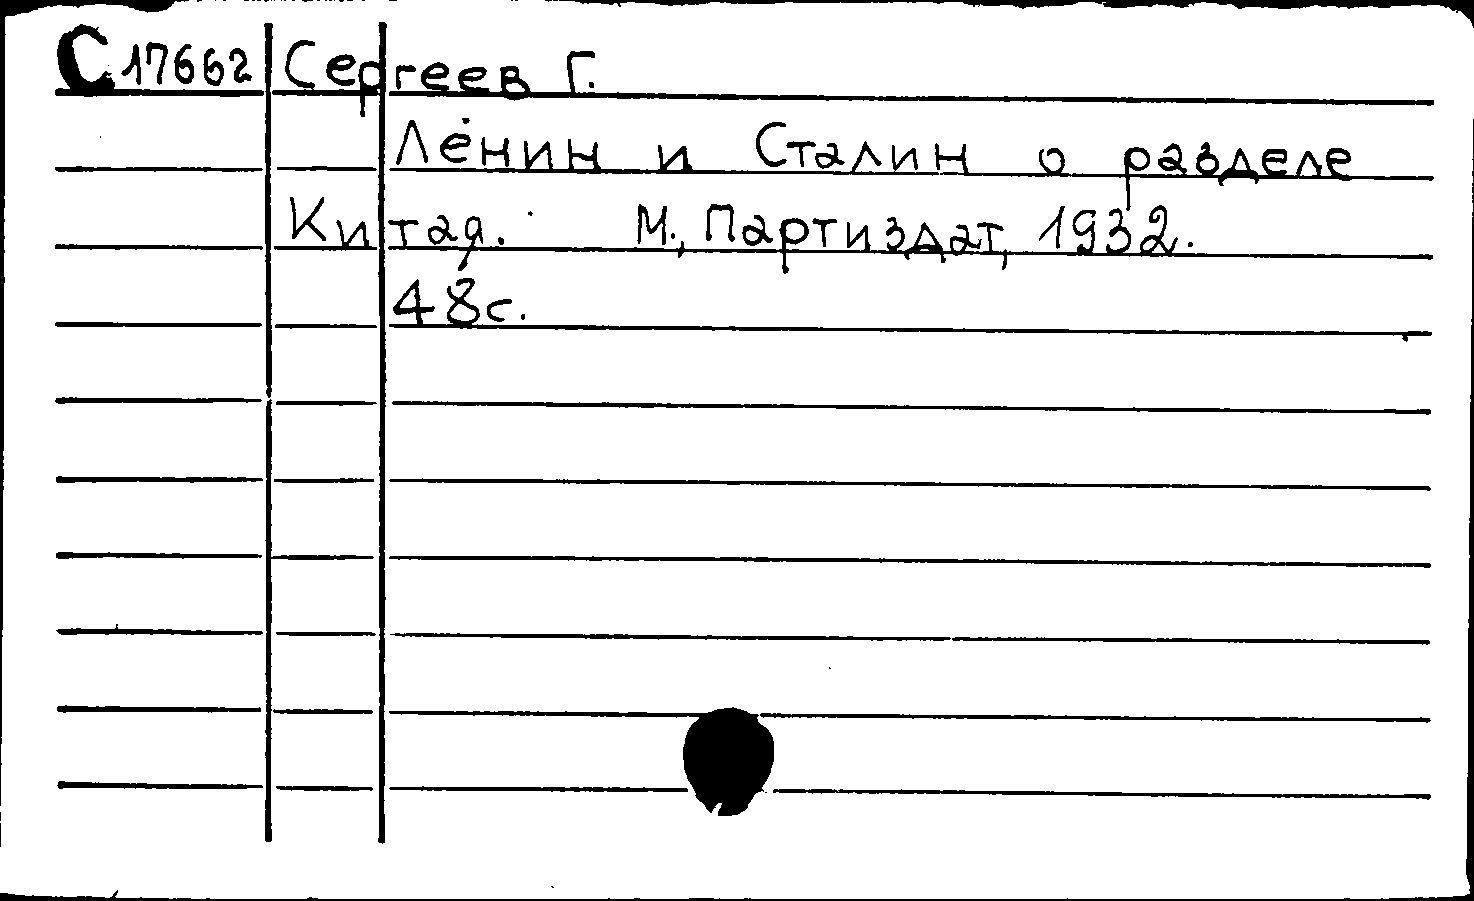 С 17662 Сергеев Г.
Ленин и Сталин о разделе
Китая. М., Партиздат, 1932.
48с.